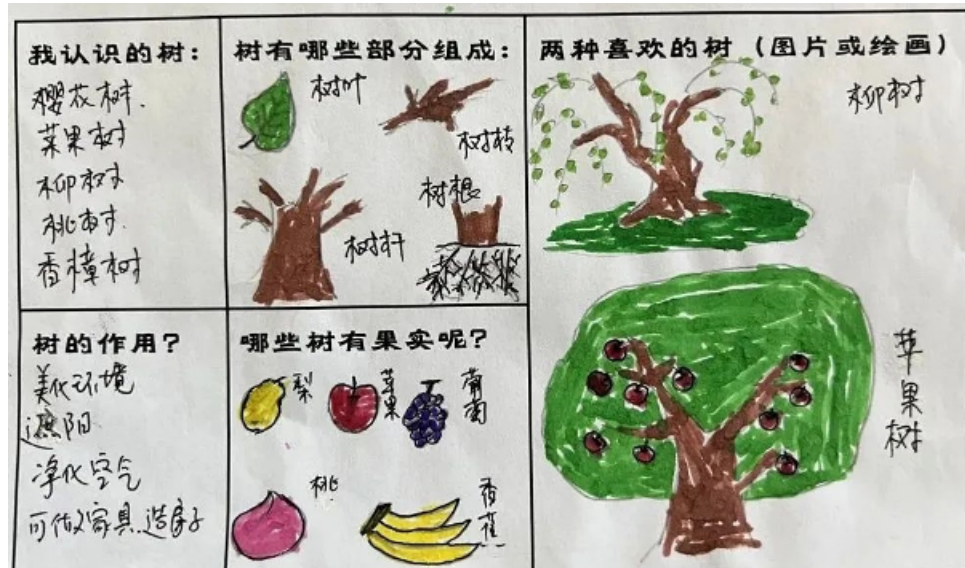 我认识的树：
樱花树.
苹果树
柳树
桃树
香樟树
树有哪些部分组成：
树叶
树枝
树根
树杆
两种喜欢的树（图片或绘画）
柳树
苹果树
树的作用？
美化环境
遮阳
净化空气
可做家具.造房子
哪些树有果实呢？
梨
苹果
葡萄
桃
香蕉